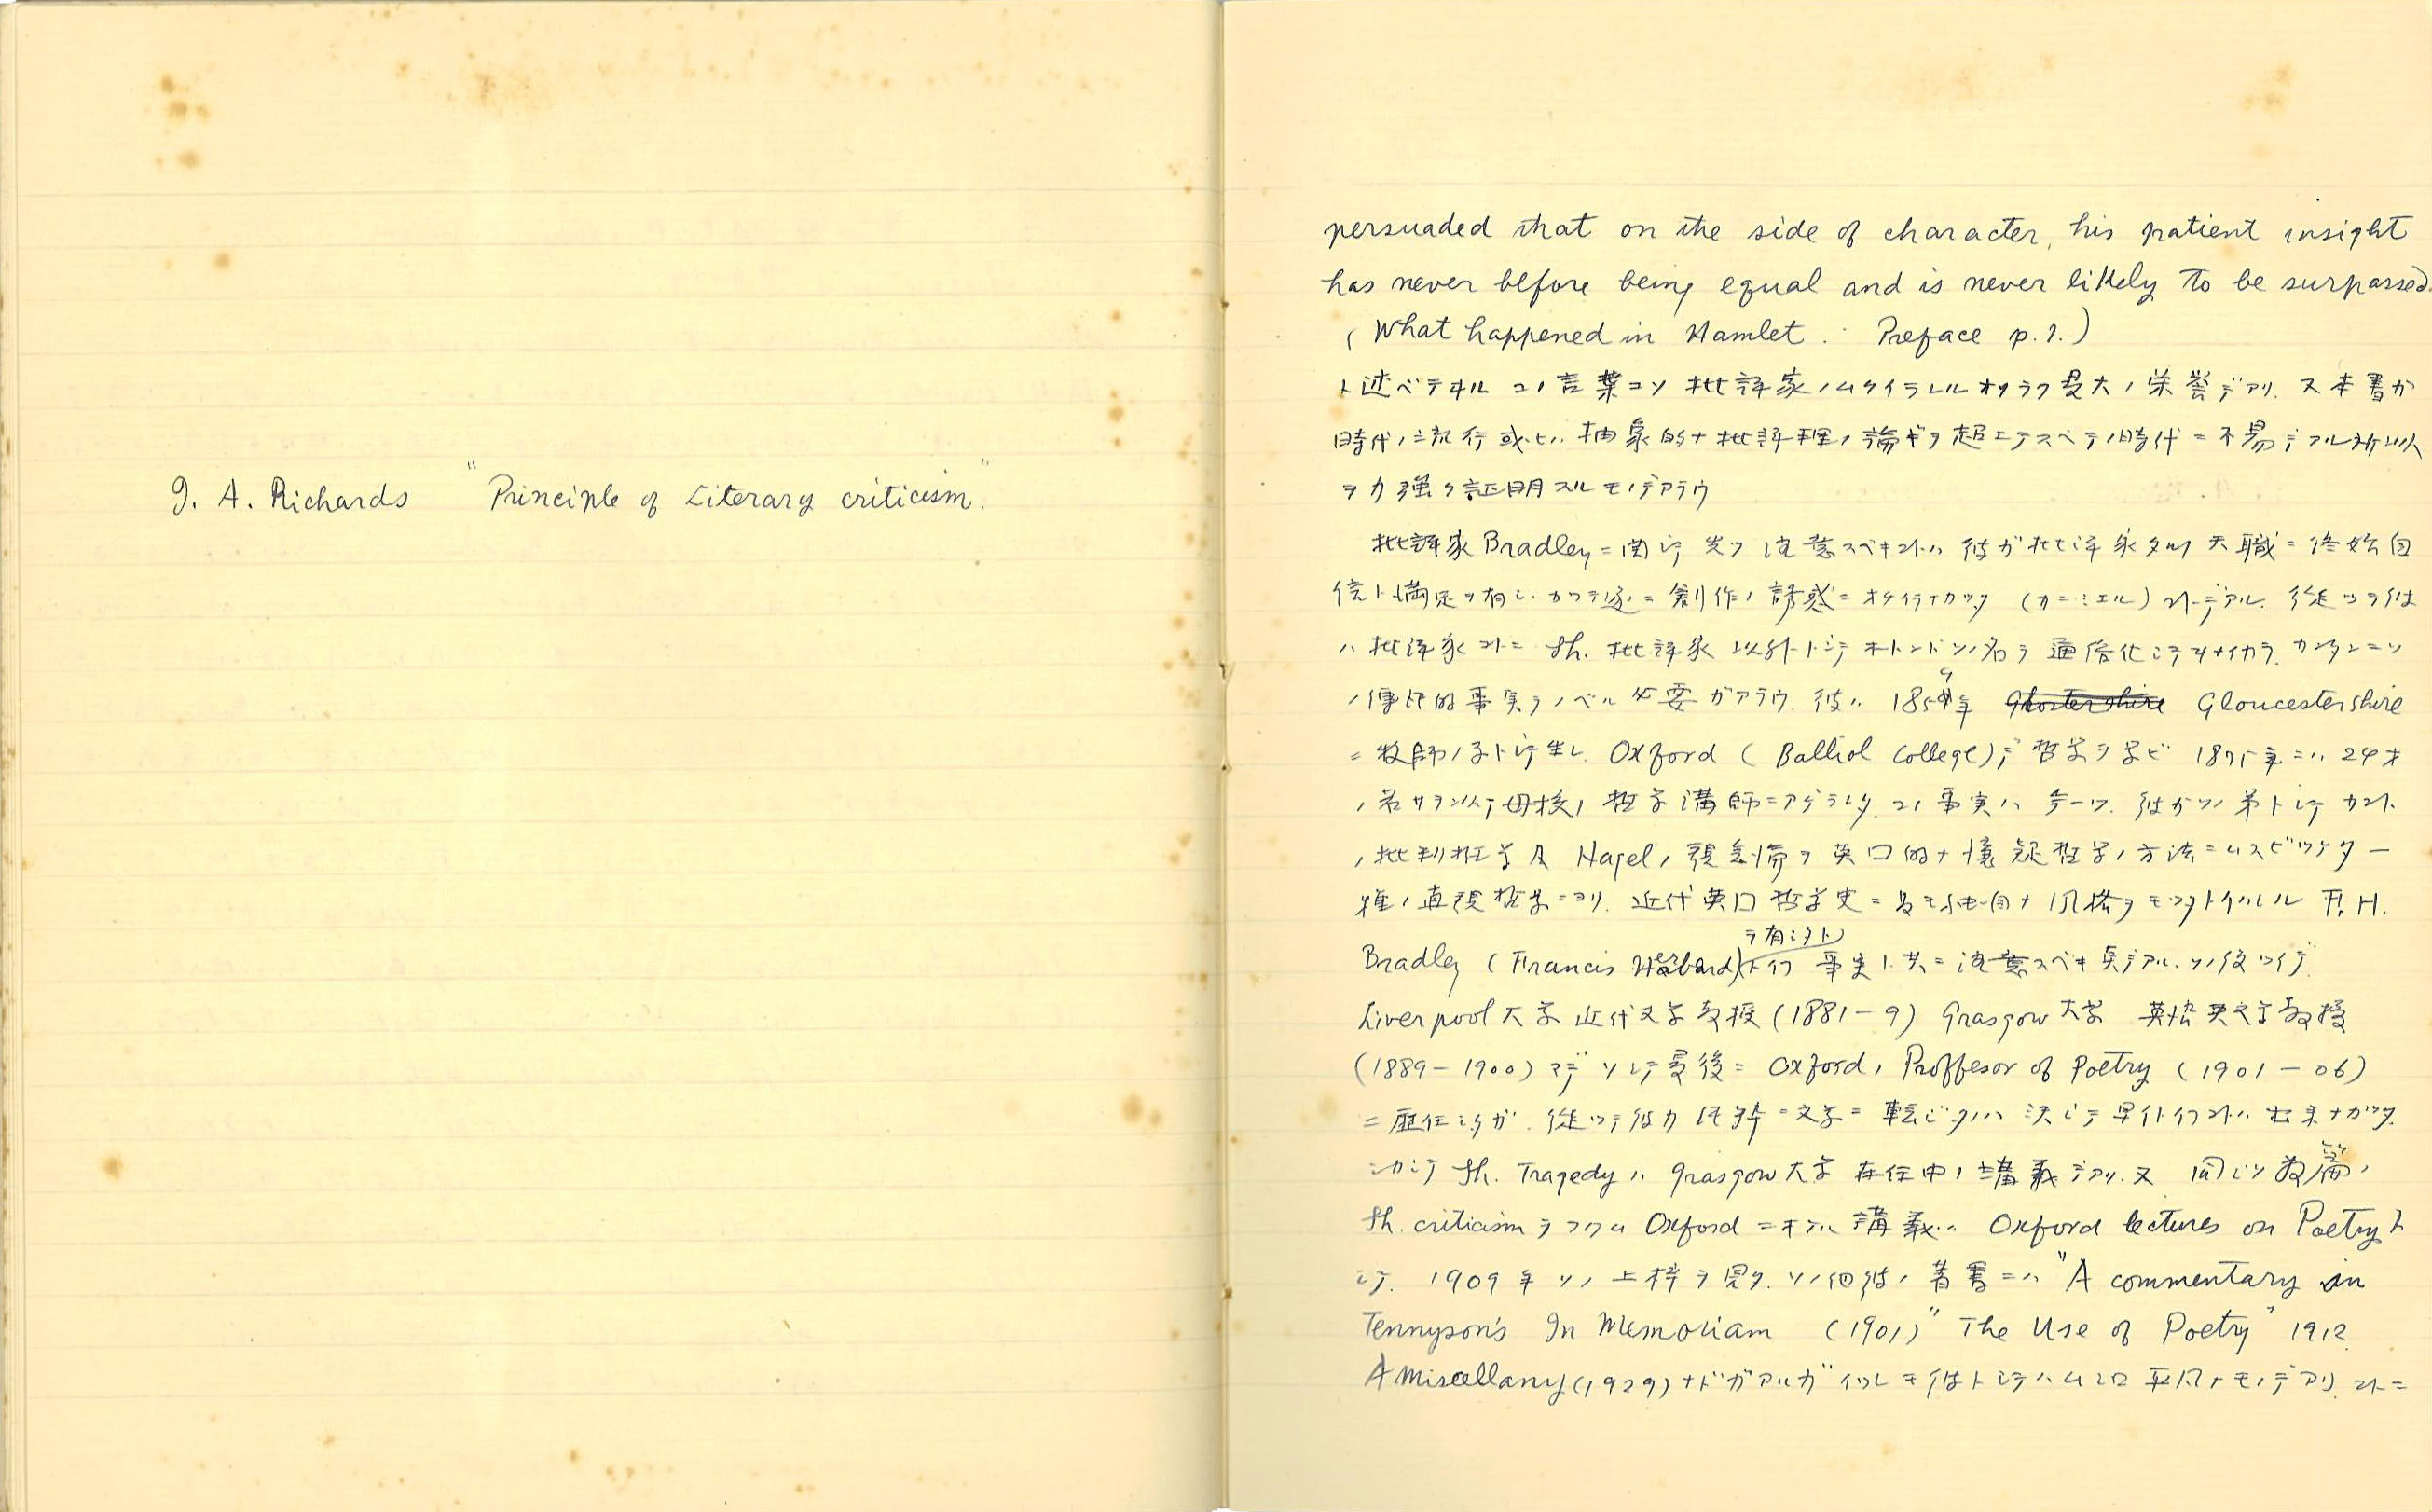 I. A. Richards "Principle of Literary criticism."
persuaded that on the side of character, his patient insight
has never before being equal and is never likely to be surpassed.
(What happened in Hamlet. Preface p.7.)
ト述ベテヰル コノ言葉コソ 批評家ノムクイラレルオソラク最大ノ栄誉デアリ. 又本書ガ
時代ノ流行或ヒハ 抽象的ナ批評理論ヲ超エテスベテノ時代ニ不易デアル所以
ヲ力強ク証明スルモノデアラウ
批評家Bradleyニ関シテ先ヅ注意スベキコトハ 彼ガ批評家タル天職ニ終始自
信ト満足ヲ有シ. カツテ遂ニ創作ノ誘惑ニオチイラナカツタ (カニミエル) コトデアル. 従ツテ彼
ハ批評家コトニ Sh. 批評家以外トシテホトンドソノ名ヲ通俗化シテヰナイカラ. カンタンニソ
ノ傳記的事実ヲノベル必要ガアラウ. 彼ハ 185年 Gloucestershire
ニ牧師ノ子トシテ生レ. Oxford (Balliol College)デ哲学ヲ学ビ 1875年ニハ 24才
ノ若サヲ以テ母校ノ哲学講師ニアゲラレタ. コノ事実ハ 今一ツ. 彼ガソノ弟トシテ カント
ノ批判哲学及 Hagelノ観念論ヲ英国的ナ懐疑哲学ノ方法ニムスビツケタ一
種ノ直観哲学ニヨリ. 近代英国哲学史ニ最モ独自ナ風格ヲモツタトイハレル F. H.
Bradley (Francis Herbard)ヲ有シタト云フ事実ト共ニ注意スベキ点デアル. ソノ後ツイデ
Liverpool大学近代文学教授 (1881-9) Grasgow大学 英語英文学教授
(1889-1900) マデ ソシテ最後ニ Oxfordノ Proffesor of Poetry (1901-06)
ニ歴任シタガ. 従ツテ彼ガ純粋ニ文学ニ転ジタノハ 決シテ早イト云フコトハ出来ナカツタ.
シカシテ Sh. Tragedyハ Grasgow大学在任中ノ講義デアリ. 又 同ジク数篇ノ
Sh. criticismヲフクム Oxfordニオケル講義ハ Oxford lectures on Poetryト
シテ. 1909年ソノ上梓ヲ見タ. ソノ他彼ノ著書ニハ "A commentary in
Tennyson's In Memoriam (1901)" "The Use of Poetry" 1912
A Miscellany (1929) ナドガアルガ イヅレモ彼トシテハムシロ平凡ナモノデアリ. コトニ